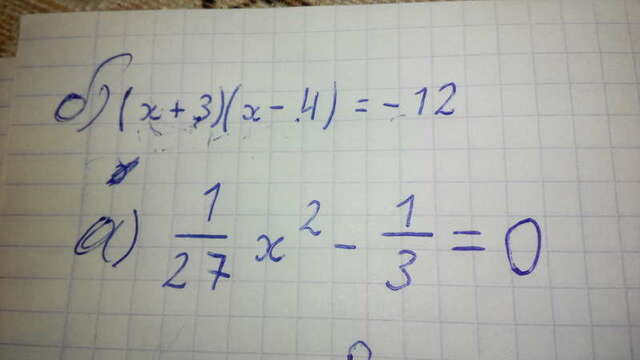 б) (x+3)(x-4) = -12
а) 1/27 x² - 1/3 = 0